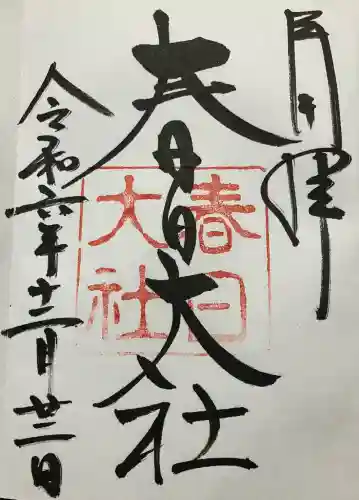 奉拝
春日大社
令和六年十二月廿二日
春日
大社